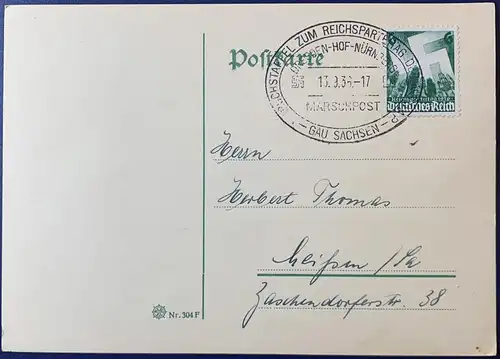 Postkarte
REICHSTAFFEL ZUM REICHSPARTEITAG D.
DRESDEN-HOF-NÜRNBERG
13.9.36-17
MARSCHPOST
- GAU SACHSEN -
6
Deutsches Reich
Herrn
Herbert Thomas
Meißen /Sa
Zaschendorferstr. 38
Nr. 304 F